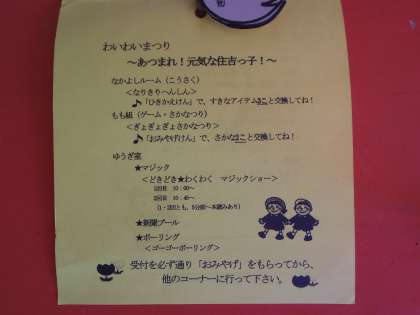 わいわいまつり
～あつまれ！元気な住吉っ子！～
なかよしルーム（こうさく）
＜なりきりへんしん＞
♪「ひきかえけん」で、すきなアイテム2こと交換してね！
もも組（ゲーム・さかなつり）
＜ぎょぎょぎょさかなつり＞
♪「おみやげけん」で、さかな2こと交換してね！
ゆうぎ室
★マジック
＜どきどき★わくわく　マジックショー＞
1回目　10：00～
2回目　10：40～
（1・2回とも、5分前～本読みあり）
★新聞プール
★ボーリング
＜ゴーゴーボーリング＞
受付を必ず通り「おみやげ」をもらってから、
他のコーナーに行って下さい。